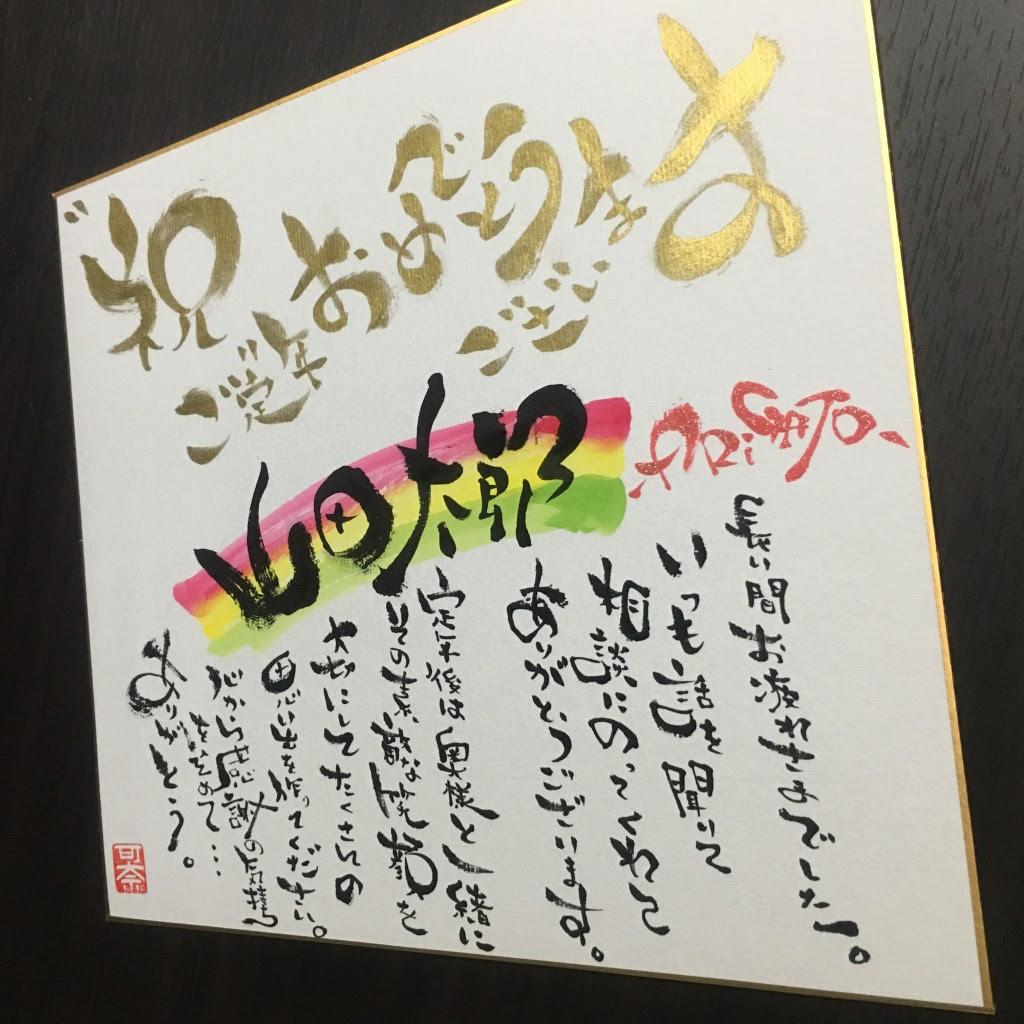 祝
ご定年
おめでとう
ござい
ます
山田太郎
ARiGATO
長い間お疲れさまでした。
いつも話を聞いて
相談にのってくれて
ありがとうございます。
定年後は奥様と一緒に
いての素敵な笑顔を
大切にしてたくさんの
思い出を作ってください。
心から感謝の気持ち
を込めて…
ありがとう。
可奈